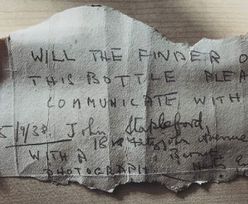 WILL THE FINDER O
THIS BOTTLE PLEA
COMMUNICATE WITH
5/9/38. John Stapleford
Avenue
WITH A
PHOTOGRAPH